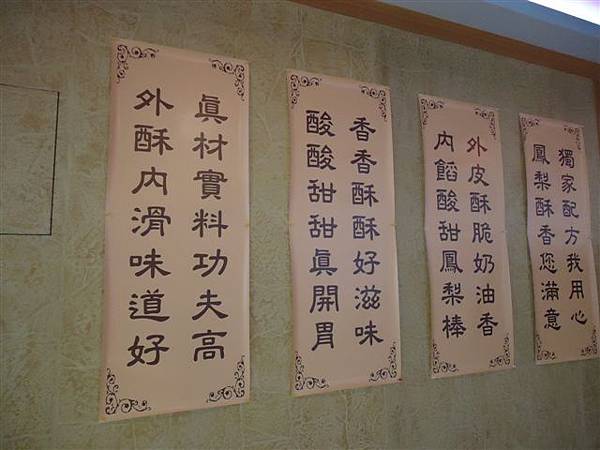 獨家配方我用心
鳳梨酥香您滿意
外皮酥脆奶油香
內餡酸甜鳳梨棒
香香酥酥好滋味
酸酸甜甜眞開胃
眞材實料功夫高
外酥內滑味道好